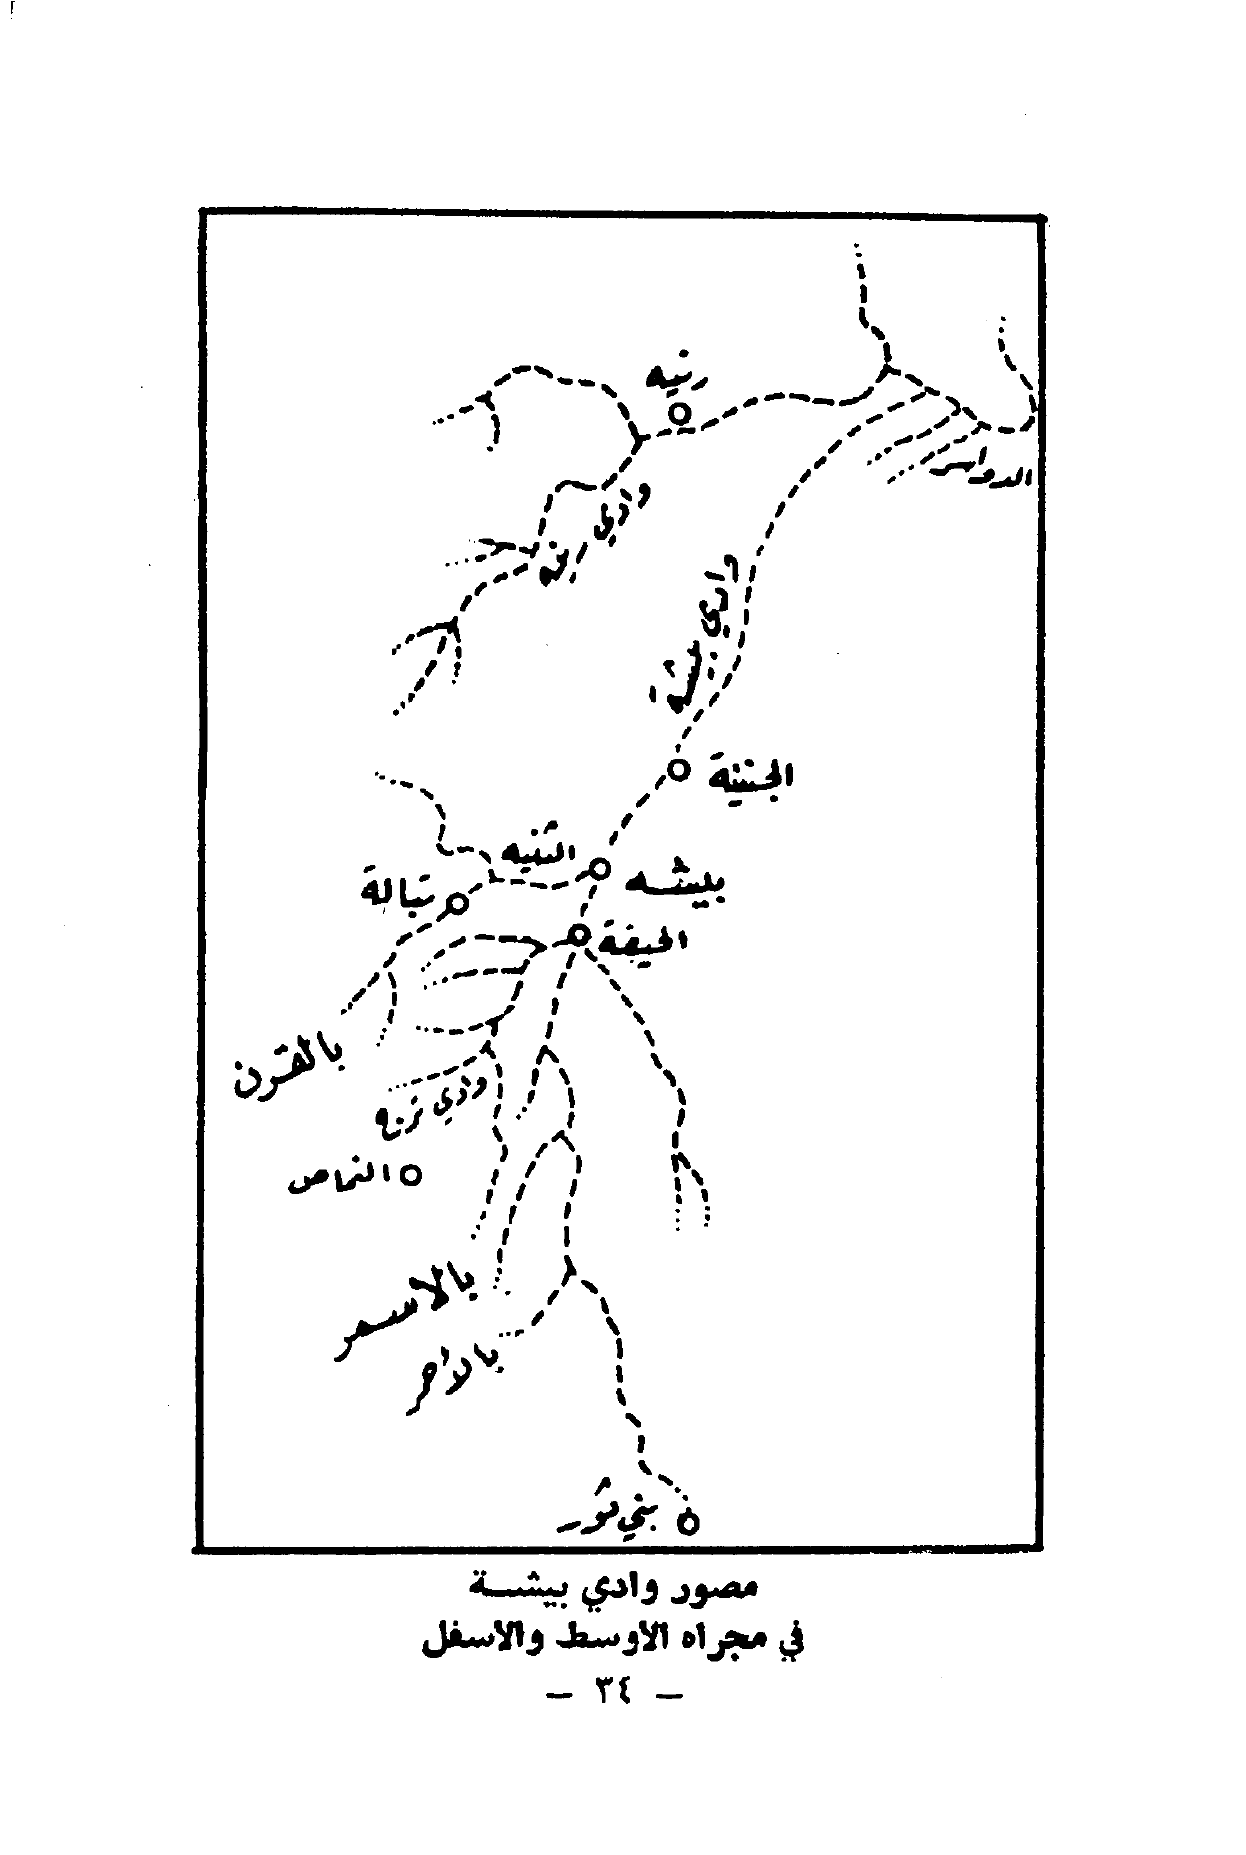 رنيه
الدواسر
وادي رنيه
وادي بيشة
الجنينة
الثنيه
بيشه
تبالة
الحيفة
بالقرن
وادي ترج
النماص
بالاسمر
بالأحمر
بني ثور
مصور وادي بيشة
في مجراه الأوسط والاسفل
— ٣٤ —